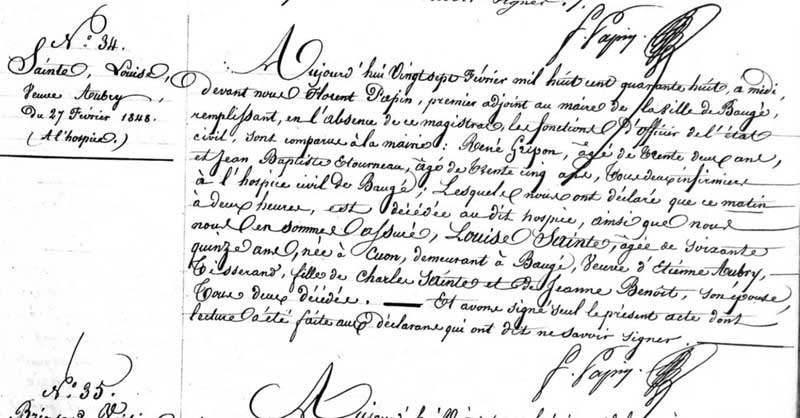 signer ./.
F. Papin
N.° 34.
Sainte, Louise,
Veuve Aubry,
Du 27 Février 1848.
(A l'hospice.)
Aujourd'hui Vingt sept Février mil huit cent quarante huit, à midi,
devant nous Florent Papin, premier adjoint au maire de la Ville de Baugé,
remplissant, en l'absence de ce magistrat, les fonctions d'officier de l'état
civil, sont comparus à la mairie : René Gripon, âgé de trente deux ans,
et Jean Baptiste Etourneau, âgé de trente cinq ans, tous deux infirmiers
à l'hospice civil de Baugé ; Lesquels nous ont déclaré que ce matin
à deux heures, est décédée au dit hospice, ainsi que nous
nous en sommes assuré, Louise Sainte, âgée de soixante
quinze ans, née à Cuon, demeurant à Baugé, Veuve d'Etienne Aubry,
Tisserand, fille de Charles Sainte et de Jeanne Benoît, son épouse,
tous deux décédés. — Et avons signé seul le présent acte dont
lecture a été faite aux déclarans qui ont dit ne savoir signer.
F. Papin
N.° 35.
Aujourd'hui